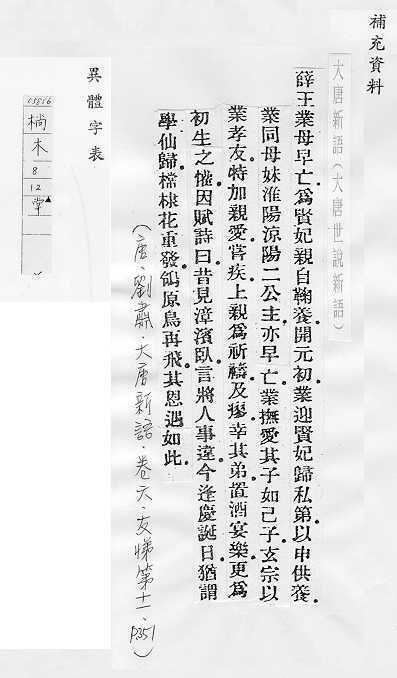 補充資料
大唐新語(大唐世說新語)
薛王業母早亡爲賢妃親自鞠養開元初業迎賢妃歸私第以申供養
業同母妹淮陽涼陽二公主亦早亡業撫愛其子如己子玄宗以
業孝友特加親愛嘗疾上親爲祈禱及瘳幸其弟置酒宴樂更爲
初生之懽因賦詩曰昔見漳濱臥言將人事違今逢慶誕日猶謂
學仙歸棣花重發鴒原鳥再飛其恩遇如此
(唐.劉肅.大唐新語.卷六.友悌第十二.P351)
異體字表
木
8
12